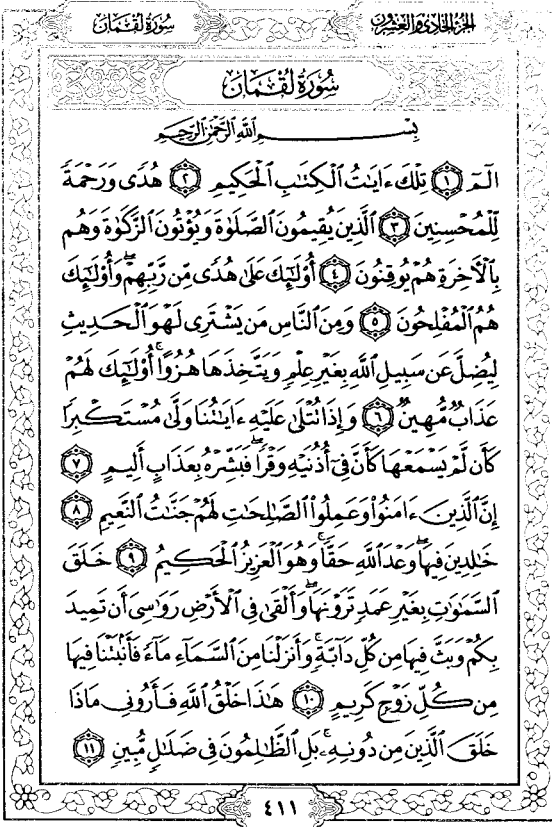 الجزء الحادي والعشرون سُورَة لُقْمَان
سُورَةُ لُقْمَان
بِسْمِ اللَّهِ الرَّحْمَٰنِ الرَّحِيمِ
الٓمٓ ١ تِلْكَ ءَايَٰتُ ٱلْكِتَٰبِ ٱلْحَكِيمِ ٢ هُدًى وَرَحْمَةً
لِّلْمُحْسِنِينَ ٣ ٱلَّذِينَ يُقِيمُونَ ٱلصَّلَوٰةَ وَيُؤْتُونَ ٱلزَّكَوٰةَ وَهُم
بِٱلْأَخِرَةِ هُمْ يُوقِنُونَ ٤ أُوْلَٰٓئِكَ عَلَىٰ هُدًى مِّن رَّبِّهِمْ ۖ وَأُوْلَٰٓئِكَ
هُمُ ٱلْمُفْلِحُونَ ٥ وَمِنَ ٱلنَّاسِ مَن يَشْتَرِى لَهْوَ ٱلْحَدِيثِ
لِيُضِلَّ عَن سَبِيلِ ٱللَّهِ بِغَيْرِ عِلْمٍ وَيَتَّخِذَهَا هُزُوًا ۚ أُوْلَٰٓئِكَ لَهُمْ
عَذَابٌ مُّهِينٌ ٦ وَإِذَا تُتْلَىٰ عَلَيْهِ ءَايَٰتُنَا وَلَّىٰ مُسْتَكْبِرًا
كَأَن لَّمْ يَسْمَعْهَا كَأَنَّ فِىٓ أُذُنَيْهِ وَقْرًا ۖ فَبَشِّرْهُ بِعَذَابٍ أَلِيمٍ ٧
إِنَّ ٱلَّذِينَ ءَامَنُوا۟ وَعَمِلُوا۟ ٱلصَّٰلِحَٰتِ لَهُمْ جَنَّٰتُ ٱلنَّعِيمِ ٨
خَٰلِدِينَ فِيهَا ۖ وَعْدَ ٱللَّهِ حَقًّا ۚ وَهُوَ ٱلْعَزِيزُ ٱلْحَكِيمُ ٩ خَلَقَ
ٱلسَّمَٰوَٰتِ بِغَيْرِ عَمَدٍ تَرَوْنَهَا ۖ وَأَلْقَىٰ فِى ٱلْأَرْضِ رَوَٰسِىَ أَن تَمِيدَ
بِكُمْ وَبَثَّ فِيهَا مِن كُلِّ دَآبَّةٍ ۚ وَأَنزَلْنَا مِنَ ٱلسَّمَآءِ مَآءً فَأَنۢبَتْنَا فِيهَا
مِن كُلِّ زَوْجٍ كَرِيمٍ ١٠ هَٰذَا خَلْقُ ٱللَّهِ فَأَرُونِى مَاذَا
خَلَقَ ٱلَّذِينَ مِن دُونِهِۦ ۚ بَلِ ٱلظَّٰلِمُونَ فِى ضَلَٰلٍ مُّبِينٍ ١١
٤١١